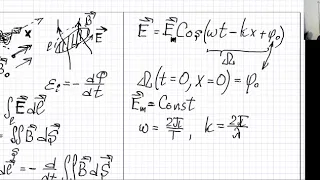 B⃗
E⃗
ε_i = - dφ/dt
∫_ℓ E⃗ dℓ⃗
= ∬ B⃗ dS⃗
dℓ⃗ = - d/dt ∬ B⃗ dS⃗
E⃗ = E⃗_m Cos(ωt - kx + φ₀)
Ω
Ω(t = 0, x = 0) = φ₀
E⃗_m = Const
ω = 2π/T , k = 2π/λ